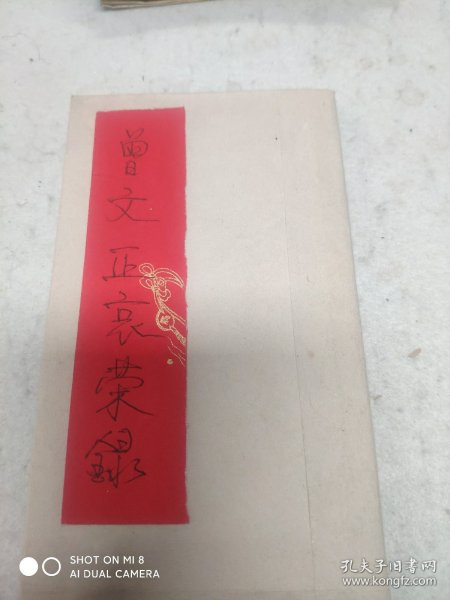 曾文正哀荣錄
SHOT ON MI 8
AI DUAL CAMERA
孔夫子旧书网
www.kongfz.com